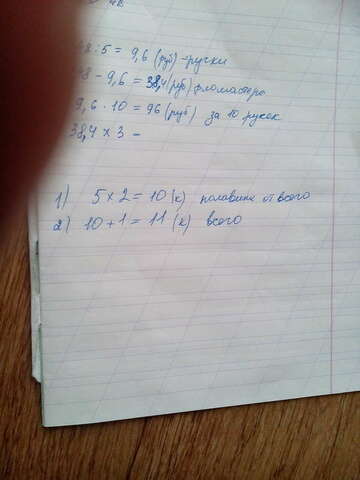 48:5 = 9,6 (руб) -ручки
48 - 9,6 = 38,4 (руб) фломастеры
9,6 · 10 = 96 (руб) за 10 ручек
38,4 x 3 -
1) 5 x 2 = 10 (к) половина от всего
2) 10 + 1 = 11 (к) всего